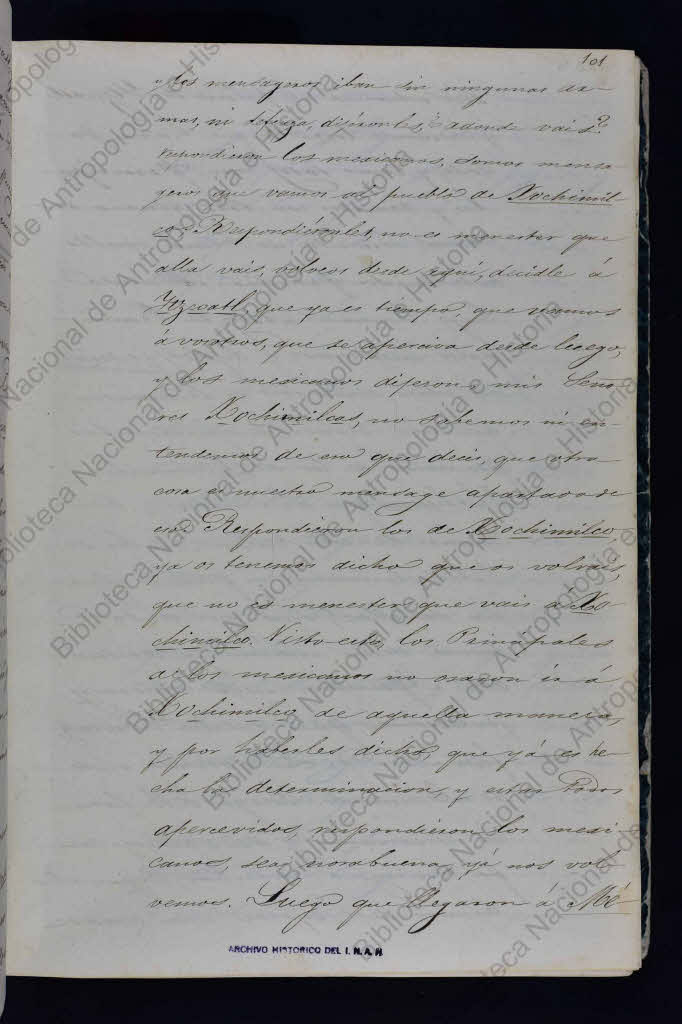 101
y los mensageros iban sin ningunas ar-
mas, ni defenza, dijéronles, é adonde vais?
respondieron los mexicanos, somos mensa
geros que vamos al pueblo de Xochimil-
co. Respondiéronles, no es menester que
alla vais, volveos desde aquí, decidle á
Ytzcoatl, que ya es tiempo, que veamos
á vosotros, que se aperciva desde luego,
y los mexicanos dijeron, mis Seño-
res Xochimilcas, no sabemos ni en-
tendemos de eso que decis, que otra
cosa es nuestro mensage apartado de
eso. Respondieron los de Xochimilco
ya os tenemos dicho que os volvais,
que no es menester que vais a Xo
chimilco. Visto esto, los Principales
de los mexicanos no osaron ir á
Xochimilco de aquella manera,
y por haberles dicho, que yá es he
cha la determinacion, y estar todos
apercevidos, respondieron los mexi
canos, sea norabuena, yá nos vol-
vemos. Luego que llegaron á Mé-
ARCHIVO HISTORICO DEL I. N. A. H.
Biblioteca Nacional de Antropología e Historia